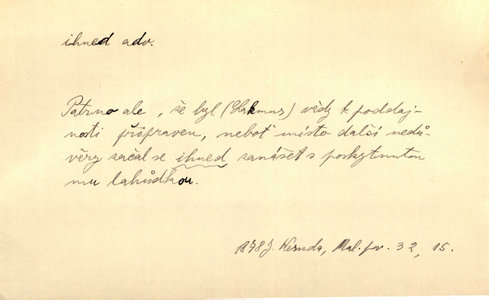 ihned adv.
Patrno ale, že byl (Hakmus) vždy k poddaj-
nosti připraven, neboť místo další nedů-
věry začal se ihned zanášet s poskytnutou
mu lahůdkou.
1878 J. Neruda, Mal. pov. 32, 15.